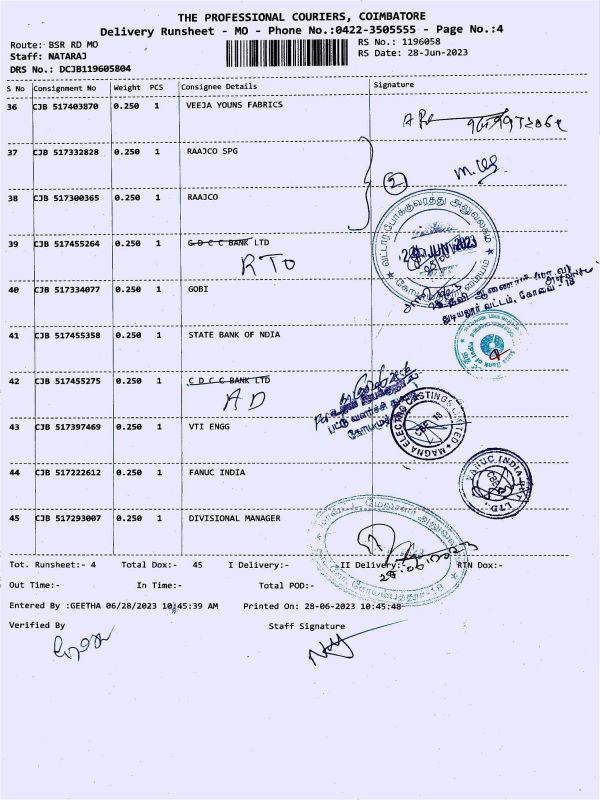 THE PROFESSIONAL COURIERS, COIMBATORE
Delivery Runsheet - MO - Phone No.:0422-3505555 - Page No.:4
Route: BSR RD MO
RS No.: 1196058
Staff: NATARAJ
RS Date: 28-Jun-2023
DRS No.: DCJB119605804
S No Consignment No Weight PCS Consignee Details Signature
36 CJB 517403870 0.250 1 VEEJA YOUNS FABRICS
37 CJB 517332828 0.250 1 RAAJCO SPG
2
38 CJB 517300365 0.250 1 RAAJCO
39 CJB 517455264 0.250 1 C D C C BANK LTD
RTO
வட்டார போக்குவரத்து அலுவலகம்
40 CJB 517334077 0.250 1 GOBI
துடியலூர் வட்டம், கோவை - 18
41 CJB 517455358 0.250 1 STATE BANK OF NDIA
42 CJB 517455275 0.250 1 C D C C BANK LTD
AD
பட்டு வளர்ச்சி
43 CJB 517397469 0.250 1 VTI ENGG
MAGNA ELECTRO CASTINGS LIMITED
CBE 18
44 CJB 517222612 0.250 1 FANUC INDIA
FANUC INDIA PVT LTD.
45 CJB 517293007 0.250 1 DIVISIONAL MANAGER
28.06.2023
Tot. Runsheet:- 4 Total Dox:- 45 I Delivery:- II Delivery:- RTN Dox:-
Out Time:- In Time:- Total POD:-
Entered By :GEETHA 06/28/2023 10:45:39 AM Printed On: 28-06-2023 10:45:48
Verified By Staff Signature